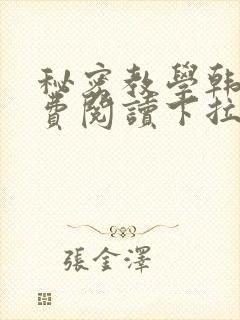 秘密教學韓
費閱讀下拉
張金澤